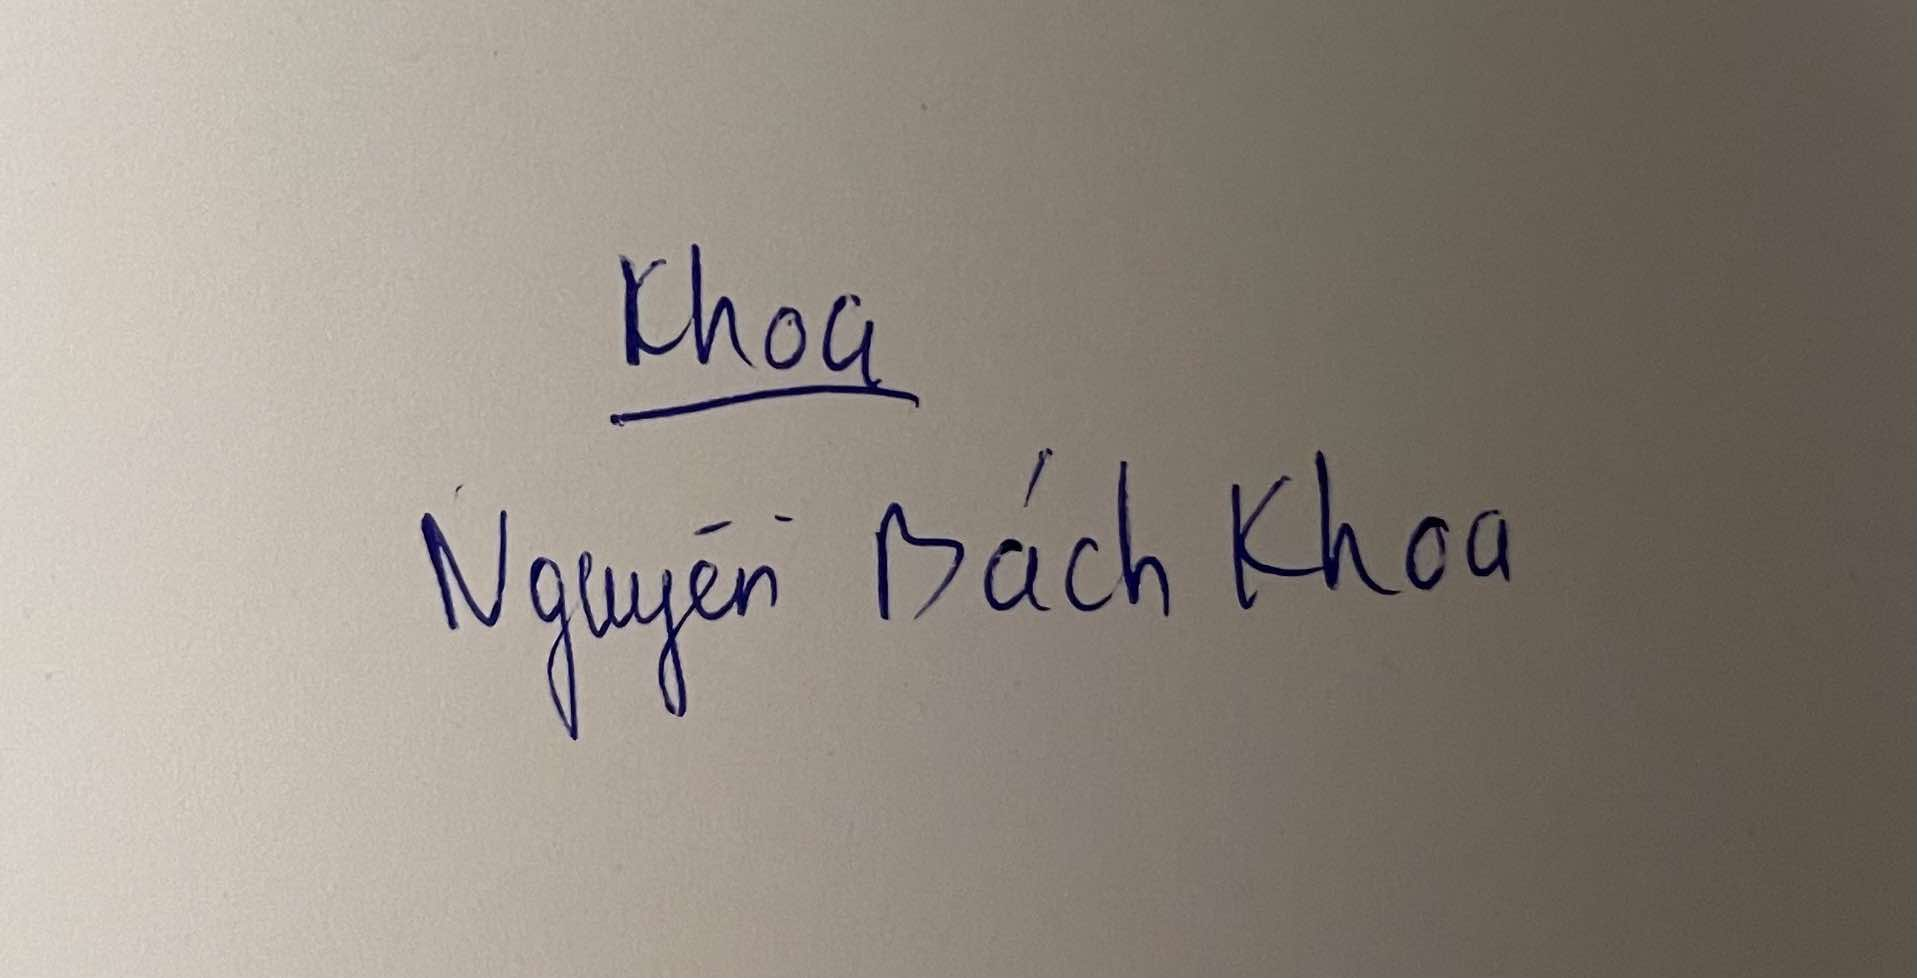 Khoa
Nguyễn Bách Khoa